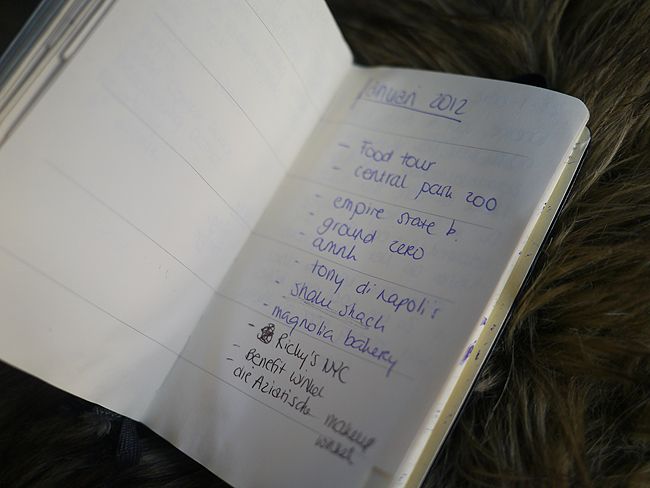 januari 2012
- Food tour
- central park zoo
- empire state b.
- ground zero
- amnh
- tony di napoli's
- shake shack
- magnolia bakery
- Ricky's NYC
- Benefit winkel
- die Aziatische makeup
winkel